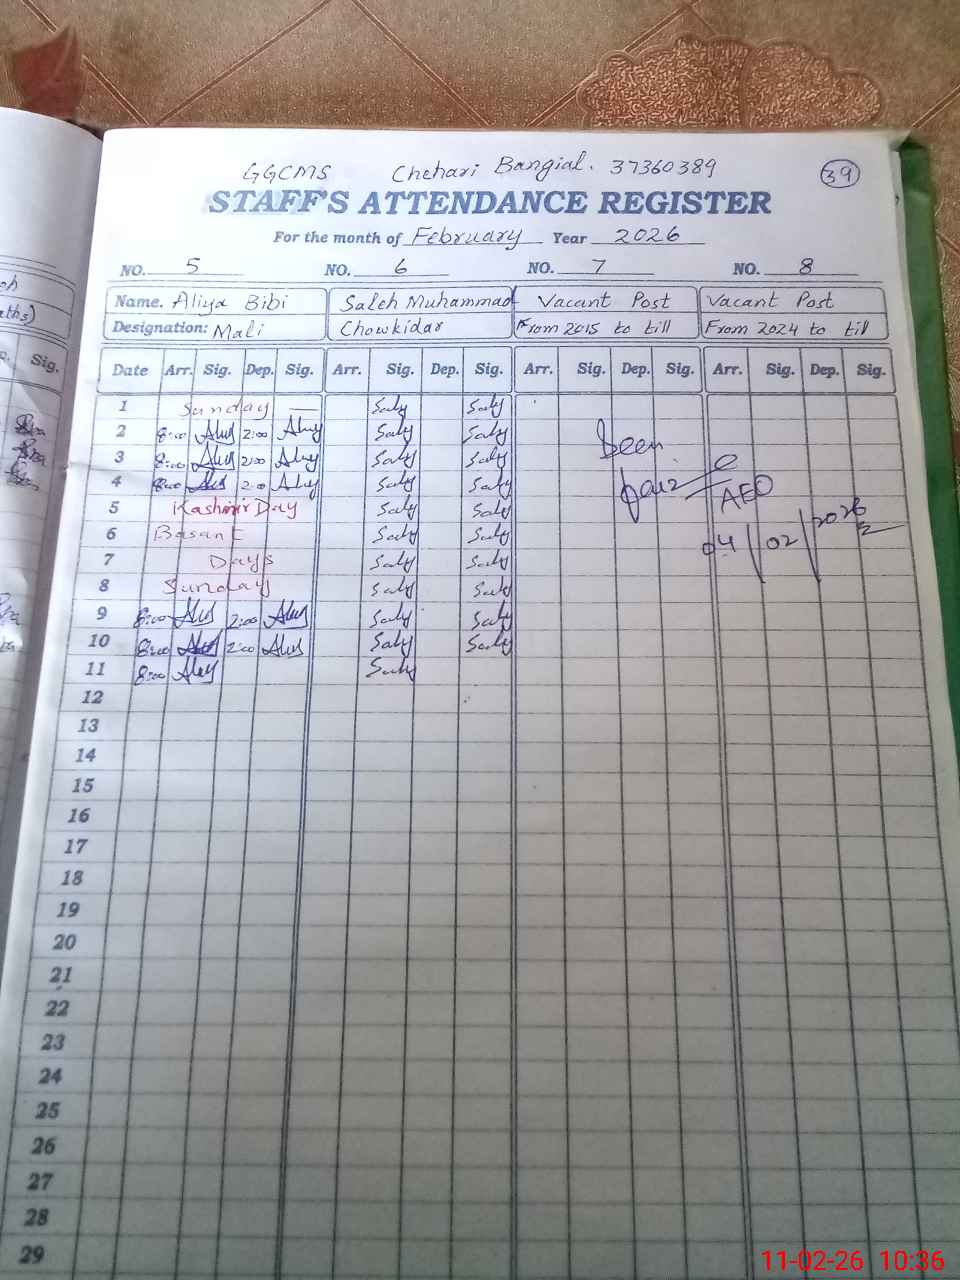 GGCMS Chehari Bangial. 37360389
39
STAFF'S ATTENDANCE REGISTER
For the month of February Year 2026
NO. 5 NO. 6 NO. 7 NO. 8
Name. Aliya Bibi Saleh Muhammad Vacant Post Vacant Post
Designation: Mali Chowkidar From 2015 to till From 2024 to till
Date Arr. Sig. Dep. Sig. Arr. Sig. Dep. Sig. Arr. Sig. Dep. Sig. Arr. Sig. Dep. Sig.
1 Sunday — Saly Saly
2 8:00 Aluy 2:00 Aluy Saly Saly
3 8:00 Aluy 2:00 Aluy Saly Saly
4 8:00 Aluy 2:00 Aluy Saly Saly
5 Kashmir Day Saly Saly
6 Basant Saly Saly
7 Days Saly Saly
8 Sunday Saly Saly
9 8:00 Aluy 2:00 Aluy Saly Saly
10 8:00 Aluy 2:00 Aluy Saly Saly
11 8:00 Aluy Saly
12
13
14
15
16
17
18
19
20
21
22
23
24
25
26
27
28
29
Seen
AEO
04/02/2026
Sig.
11-02-26 10:36